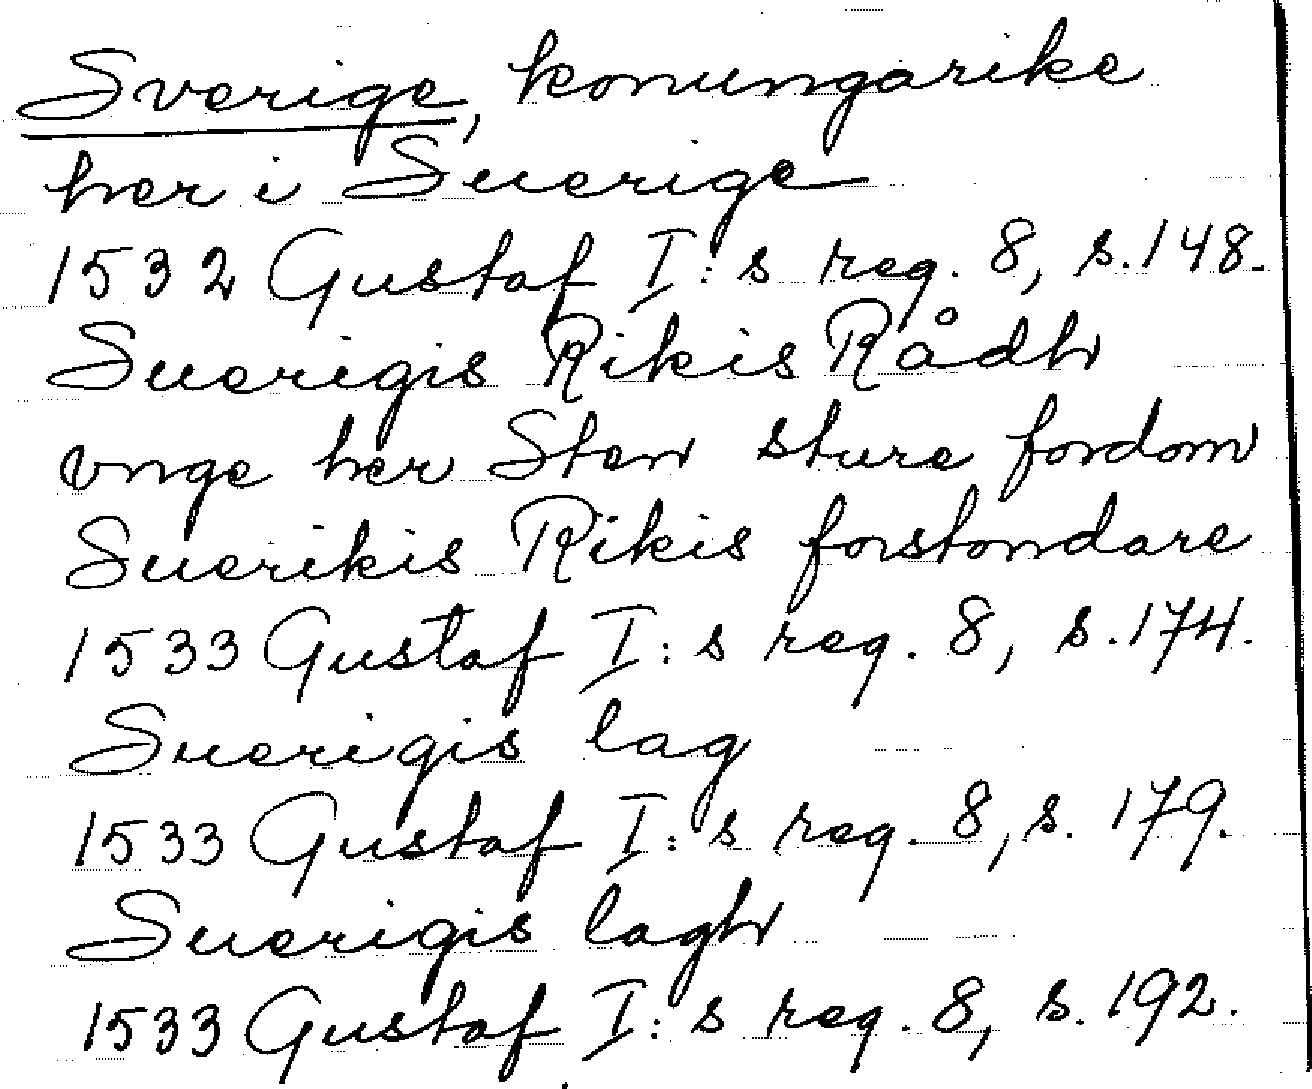 Sverige, konungarike
her i Suerige
1532 Gustaf I:s reg. 8, s. 148.
Suerigis Rikis Rådh
vnge her Sten sture fordom
Suerikis Rikis forstondare
1533 Gustaf I:s reg. 8, s. 174.
Suerigis lag
1533 Gustaf I:s reg. 8, s. 179.
Suerigis lagh
1533 Gustaf I:s reg. 8, s. 192.